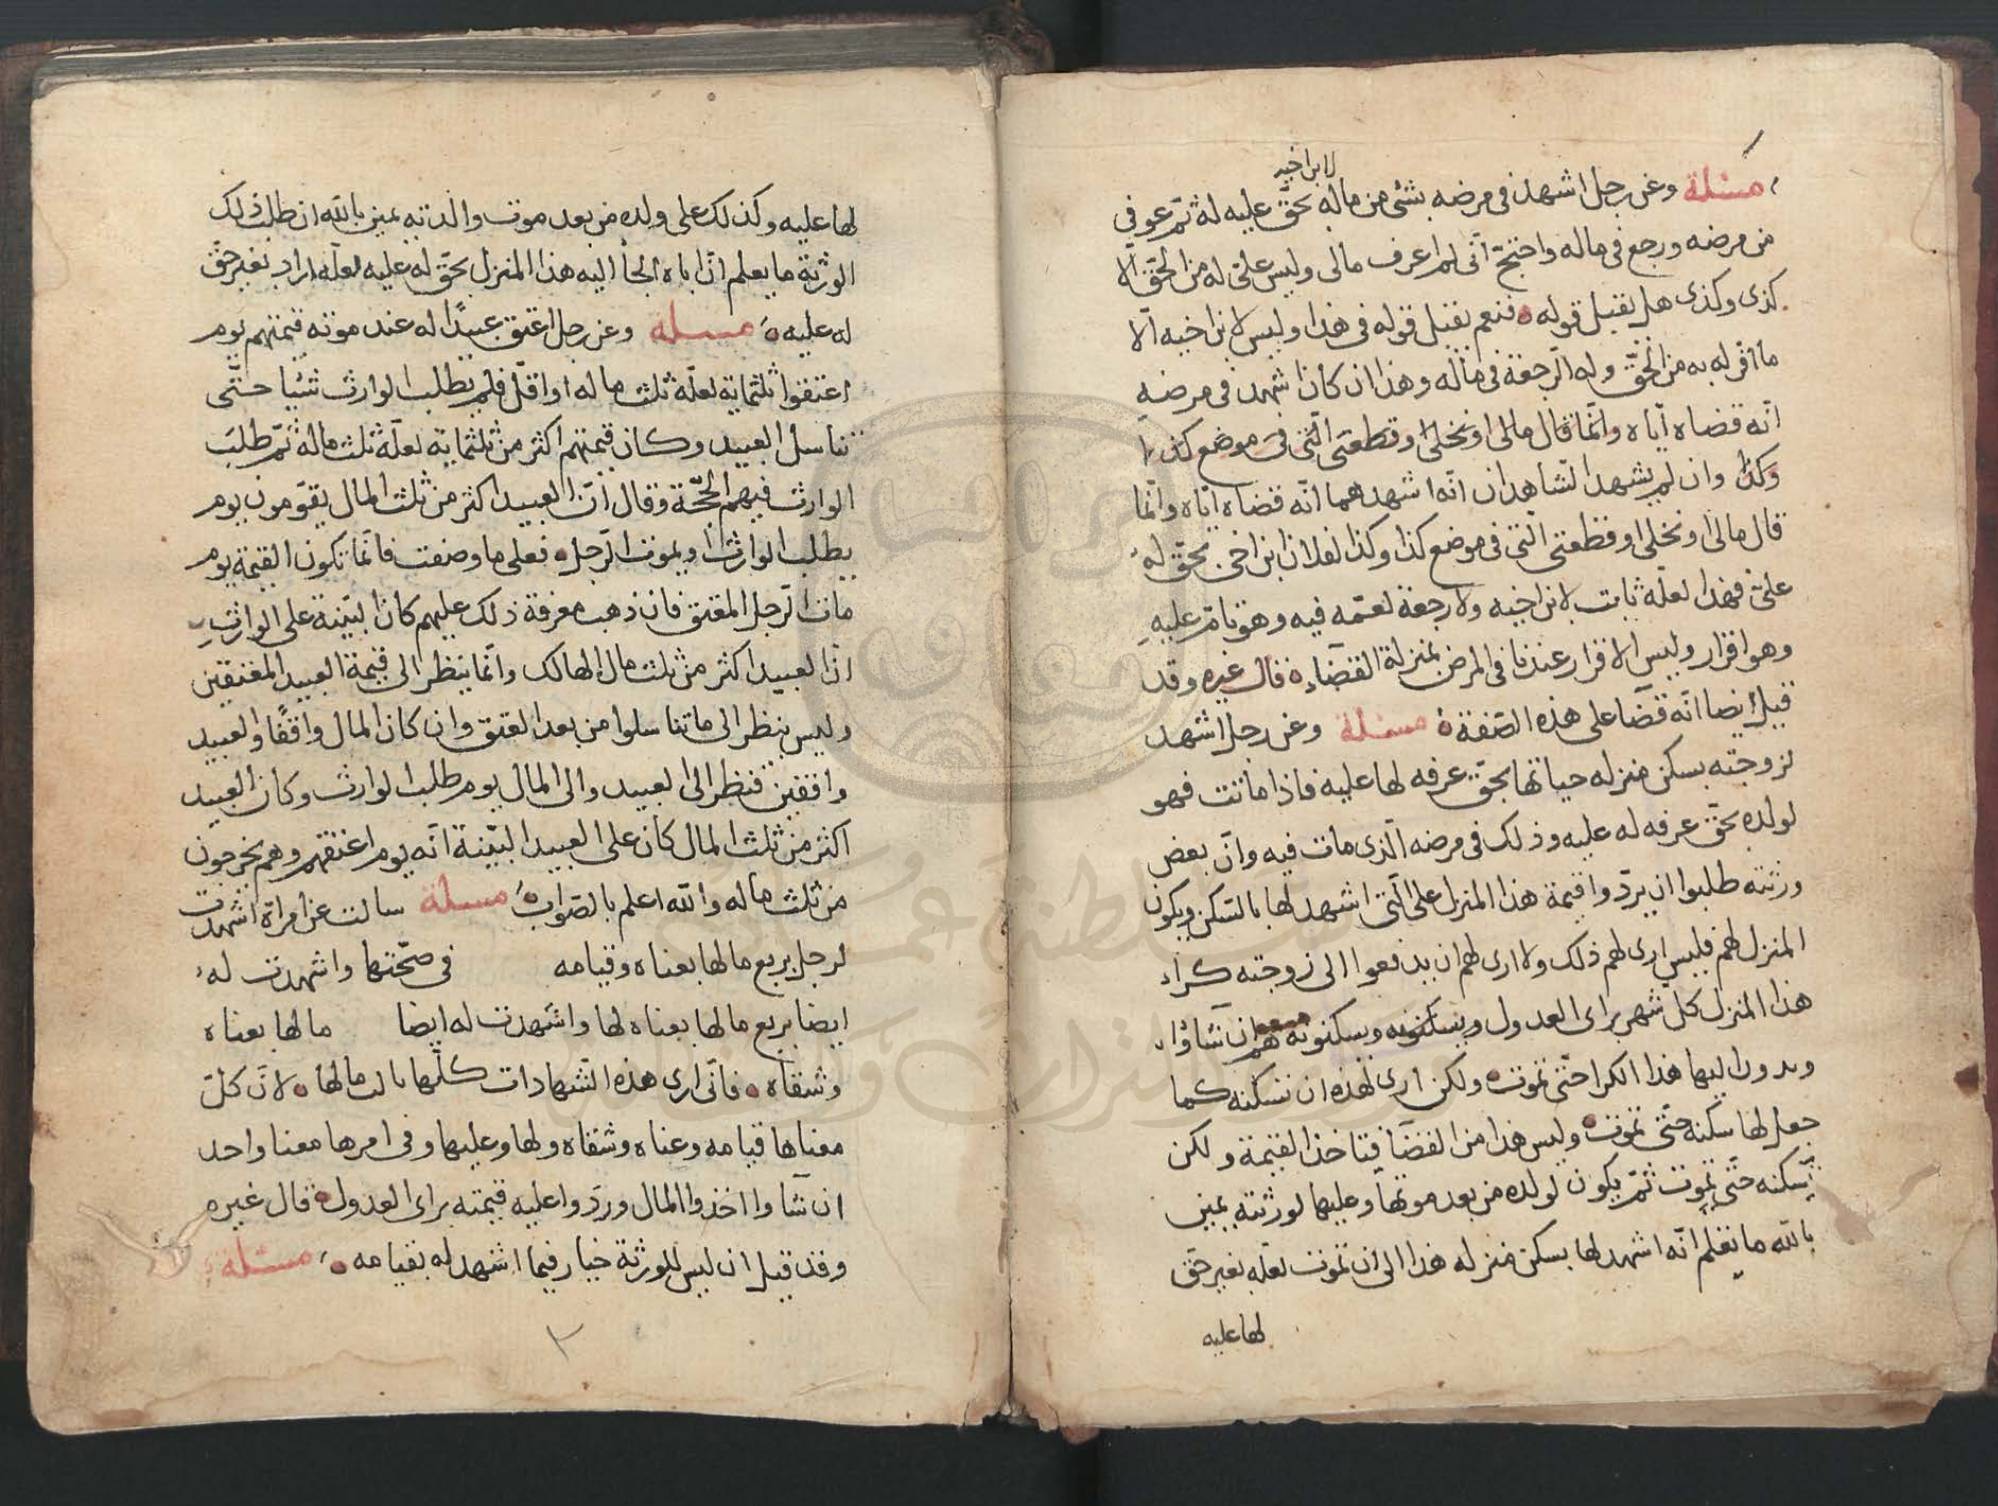 لابن اخيه
مسئلة وعن رجل اشهد فى مرضه بشئ من ماله بحقّ عليه له ثم عوفى
من مرضه ورجع فى ماله واحتجّ انّى لم اعرف مالى وليس علىّ له من الحقّ الّا
كذى وكذى هل يقبل قوله فنعم يقبل قوله فى هذا وليس لابن اخيه الّا
ما اقرّ له به من الحقّ وله الرّجعة فى ماله وهذا ان كان اشهد فى مرضه
انّه قضاه ايّاه وانّما قال مالى او نخلى او قطعتى الّتى فى موضع كذا
وكذا وان لم يشهد الشاهدان انّه اشهدهما انّه قضاه ايّاه وانّما
قال مالى او نخلى او قطعتى الّتى فى موضع كذا وكذا لفلان ابن اخى بحقّ له
علىّ فهذا لعلّه ثابت لابن اخيه ولا رجعة لعمّه فيه وهو تامّ عليه
وهو اقرار وليس الاقرار عندنا فى المرض بمنزلة القضاء قال غيره وقد
قيل ايضا انّه قضّا على هذه الصّفة مسئلة وعن رجل اشهد
لزوجته بسكن منزله حياتها بحقّ عرفه لها عليه فاذا ماتت فهو
لولده بحقّ عرفه له عليه وذلك فى مرضه الّذى مات فيه وانّ بعض
ورثته طلبوا ان يردّوا قيمة هذا المنزل على الّتى اشهد لها بالسّكن ويكون
المنزل لهم فليس ارى لهم ذلك ولا ارى لهم ان يدفعوا الى زوجته كراء
هذا المنزل كل شهر براى العدول ويسكنونه هم ان شآؤا
ويدون اليها هذا الكرا حتّى تموت ولكن ارى لهذه ان تسكنه كما
جعل لها سكنه حتّى تموت وليس هذا من القضآ فيتاخذ القيمة ولكن
تسكنه حتّى تموت ثمّ يكون لولده من بعد موتها وعليها لورثته يمين
بالله ما تعلم انّه اشهد لها بسكن منزله هذا الى ان تموت لعلّه بغير حقّ
لها عليه
لها عليه وكذلك على ولده من بعد موت والدته يمين بالله ان طلب ذلك
الورثة ما يعلم انّ اباه الجأ اليه هذا المنزل بحقّ له عليه لعلّه اراد بغير حقّ
له عليه مسئلة وعن رجل اعتق عبيدًا له عند موته قيمتهم يوم
اعتقوا ثلثماية لعلّه ثلث ماله او اقلّ فلم يطلب الوارث شيئا حتّى
تناسل العبيد وكان قيمتهم اكثر من ثلثماية لعلّه ثلث ماله ثمّ طلب
الوارث فيهم الحجّة وقال انّ العبيد اكثر من ثلث المال يقوّمون يوم
يطلب الوارث او يموت الرّجل فعلى ما وصفت فانّما تكون القيمة يوم
مات الرّجل المعتق فان ذهب معرفة ذلك عليهم كان البيّنة على الوارث
انّ العبيد اكثر من ثلث مال الهالك وانّما ينظر الى قيمة العبيد المعتقين
وليس ينظر الى ما تناسلوا من بعد العتق وان كان المال واقفًا والعبيد
واقفين فنظر الى العبيد والى المال يوم طلب الوارث وكان العبيد
اكثر من ثلث المال كان على العبيد البيّنة انّه يوم اعتقهم وهم يخرجون
من ثلث ماله والله اعلم بالصّواب مسئلة سالت عن امراة اشهدت
لرجل بربع مالها بعناه وقيامه فى صحّتها واشهدت له
ايضا بربع مالها بعناه لها واشهدت له ايضا مالها بعناه
وشقاه فانّى ارى هذه الشّهادات كلّها مالها لانّ كلّ
معناها قيامه وعناه وشقاه ولها وعليها وفى امرها معنا واحد
ان شآوا اخذوا المال وردّوا عليه قيمته براى العدول قال غيره
وقد قيل ان ليس للورثة خيار فيما اشهد له بقيامه مسئلة